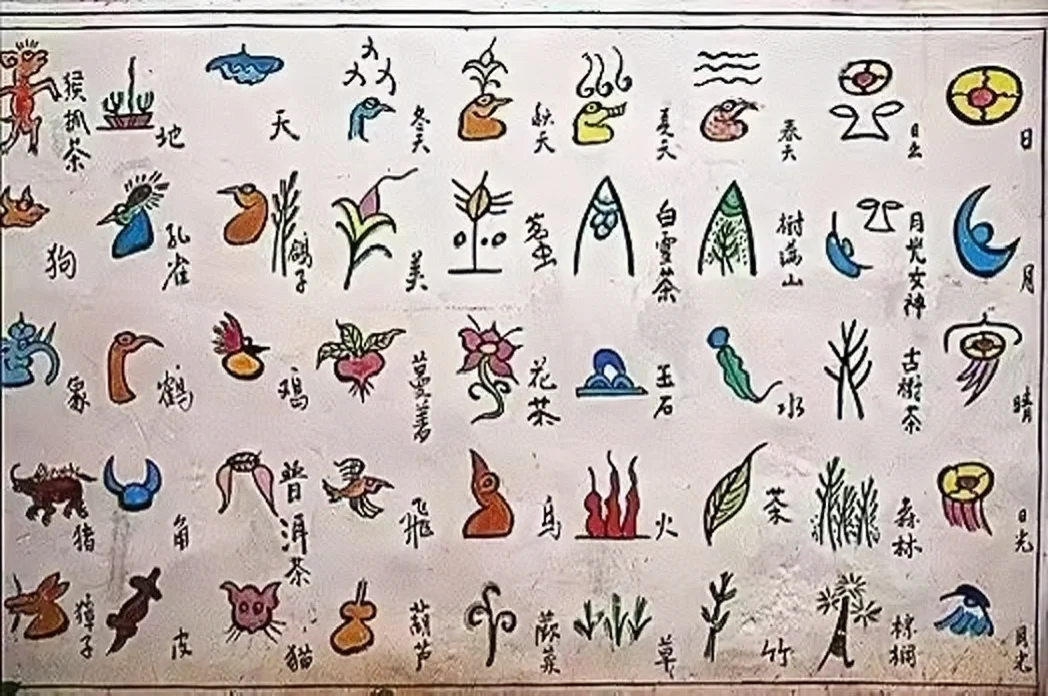 日
月
晴
日光
月光
日出
月光女神
古樹茶
森林
棕榈
春天
樹满山
水
茶
竹
夏天
白雪茶
玉石
火
草
秋天
花茶
鸟
蕨菜
冬天
美
飛
葫芦
天
鸽子
鸡
普洱茶
猫
地
孔雀
鹤
角
皮
猴抓茶
狗
象
猪
獐子